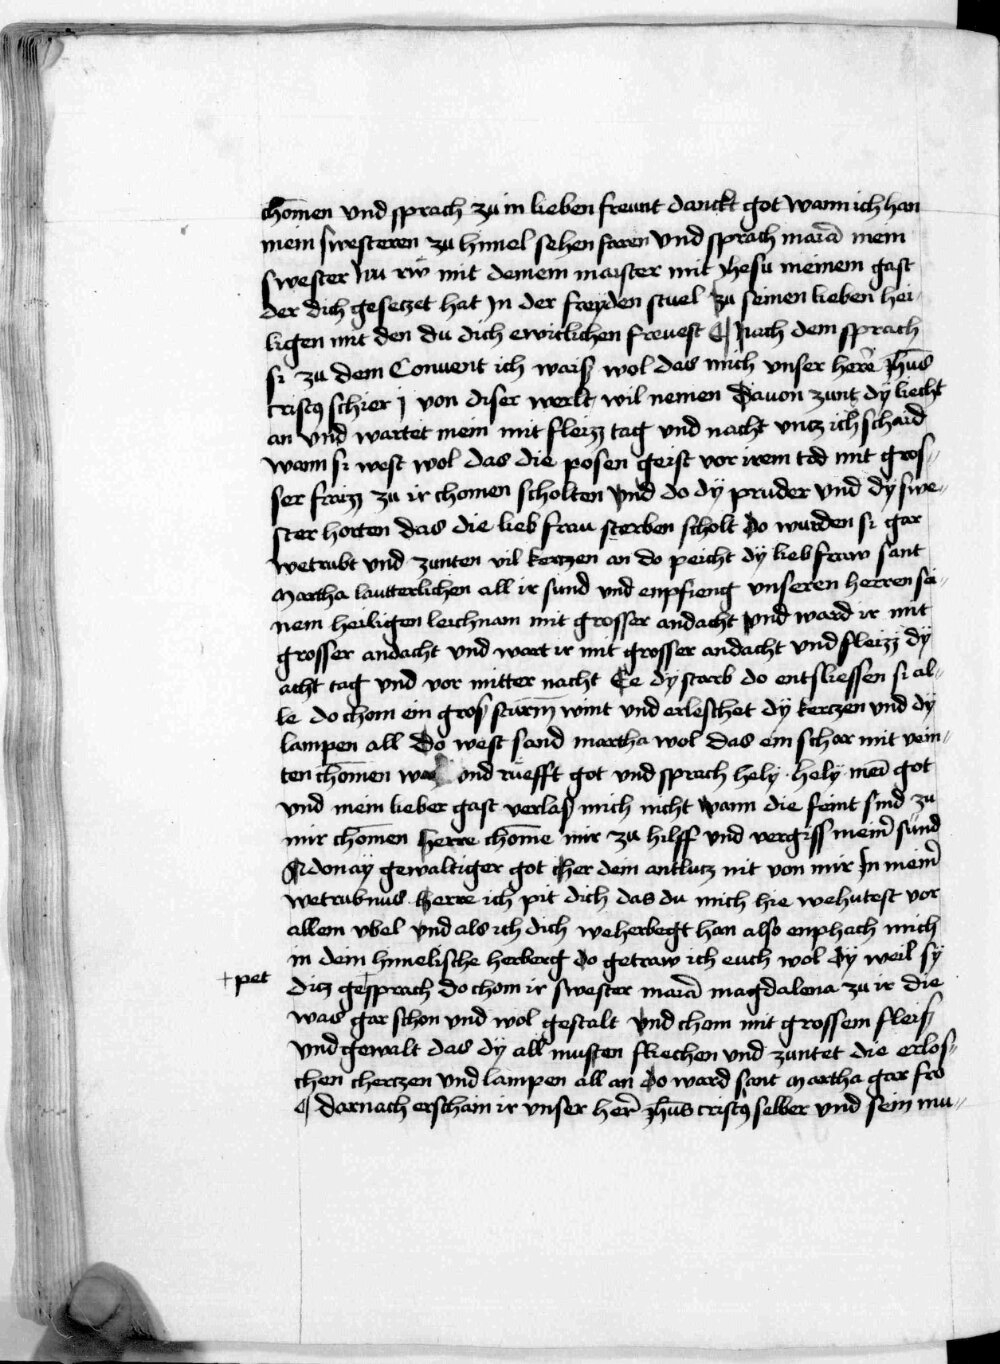 chōmen vnd sprach zu in lieben freunt danckt got wann ich han
mein swesteren zu himel sehen faren Vnd sprach maria mein
swester Nu rw mit deinem maister mit yhesu meinem gast
der dich gesetzet hat Jn der freyden stuel zu seinen lieben hei-
ligen mit den du dich ewicklichen frewest ¶ Nach dem sprach
si zu dem Conuent ich waiss wol das mich vnser herē Jhūs
cristus schier von diser werlt wil nemen Dauon zunt dy liecht
an vnd wartet mein mit fleizz tag vnd nacht vntz ich schaid
wann si west wol das die posen geist vor irem tod mit gros-
ser fraizz zu ir chomen scholten vnd do dy pruder vnd dy swe-
ster horten das die lieb frau sterben scholt Do wurden si gar
wetrubt vnd zunten vil kertzen an do peicht dy lieb fraw sant
Martha lautterlichen all ir sund vnd enpfieng vnseren herren sei-
nem heiligen leichnam mit grosser andacht vnd ward ir mit
grosser andacht vnd wart ir mit grosser andacht vnd fleizz dy
acht tag vnd vor mitter nacht Ee dy starb do entsliessen si al-
le do chom ein gross sturm wint vnd erleschet dy kertzen vnd dy
lampen all Do west sand martha wol das ein schar mit vein-
ten chōmen vnd ruefft got vnd sprach hely · hely mei got
vnd mein lieber gast verlass mich nicht wann die feint sind zu
mir chōmen Herre chōme mir zu hilff vnd vergiss meiner sund
Adonay gewaltiger got cher dein antlutz nit von mir Jn meiner
wetrubnus · Herre ich pit dich das du mich hie wehutest vor
allem vbel vnd als ich dich weherbergt han also enphach mich
in dein himelische herberg Do getraw ich euch wol Dy weil sy
+pet
ditz ge+sprach do chom ir swester maria magdalena zu ir die
was gar schon vnd wol gestalt vnd chom mit grossem fleiss
vnd gewalt das dy all musten fliechen vnd zuntet die erlos-
chen chertzen vnd lampen all an Do ward sant Martha gar fro
¶ Darnach erschain ir vnser herē Jhūs cristus selber vnd sein mu-